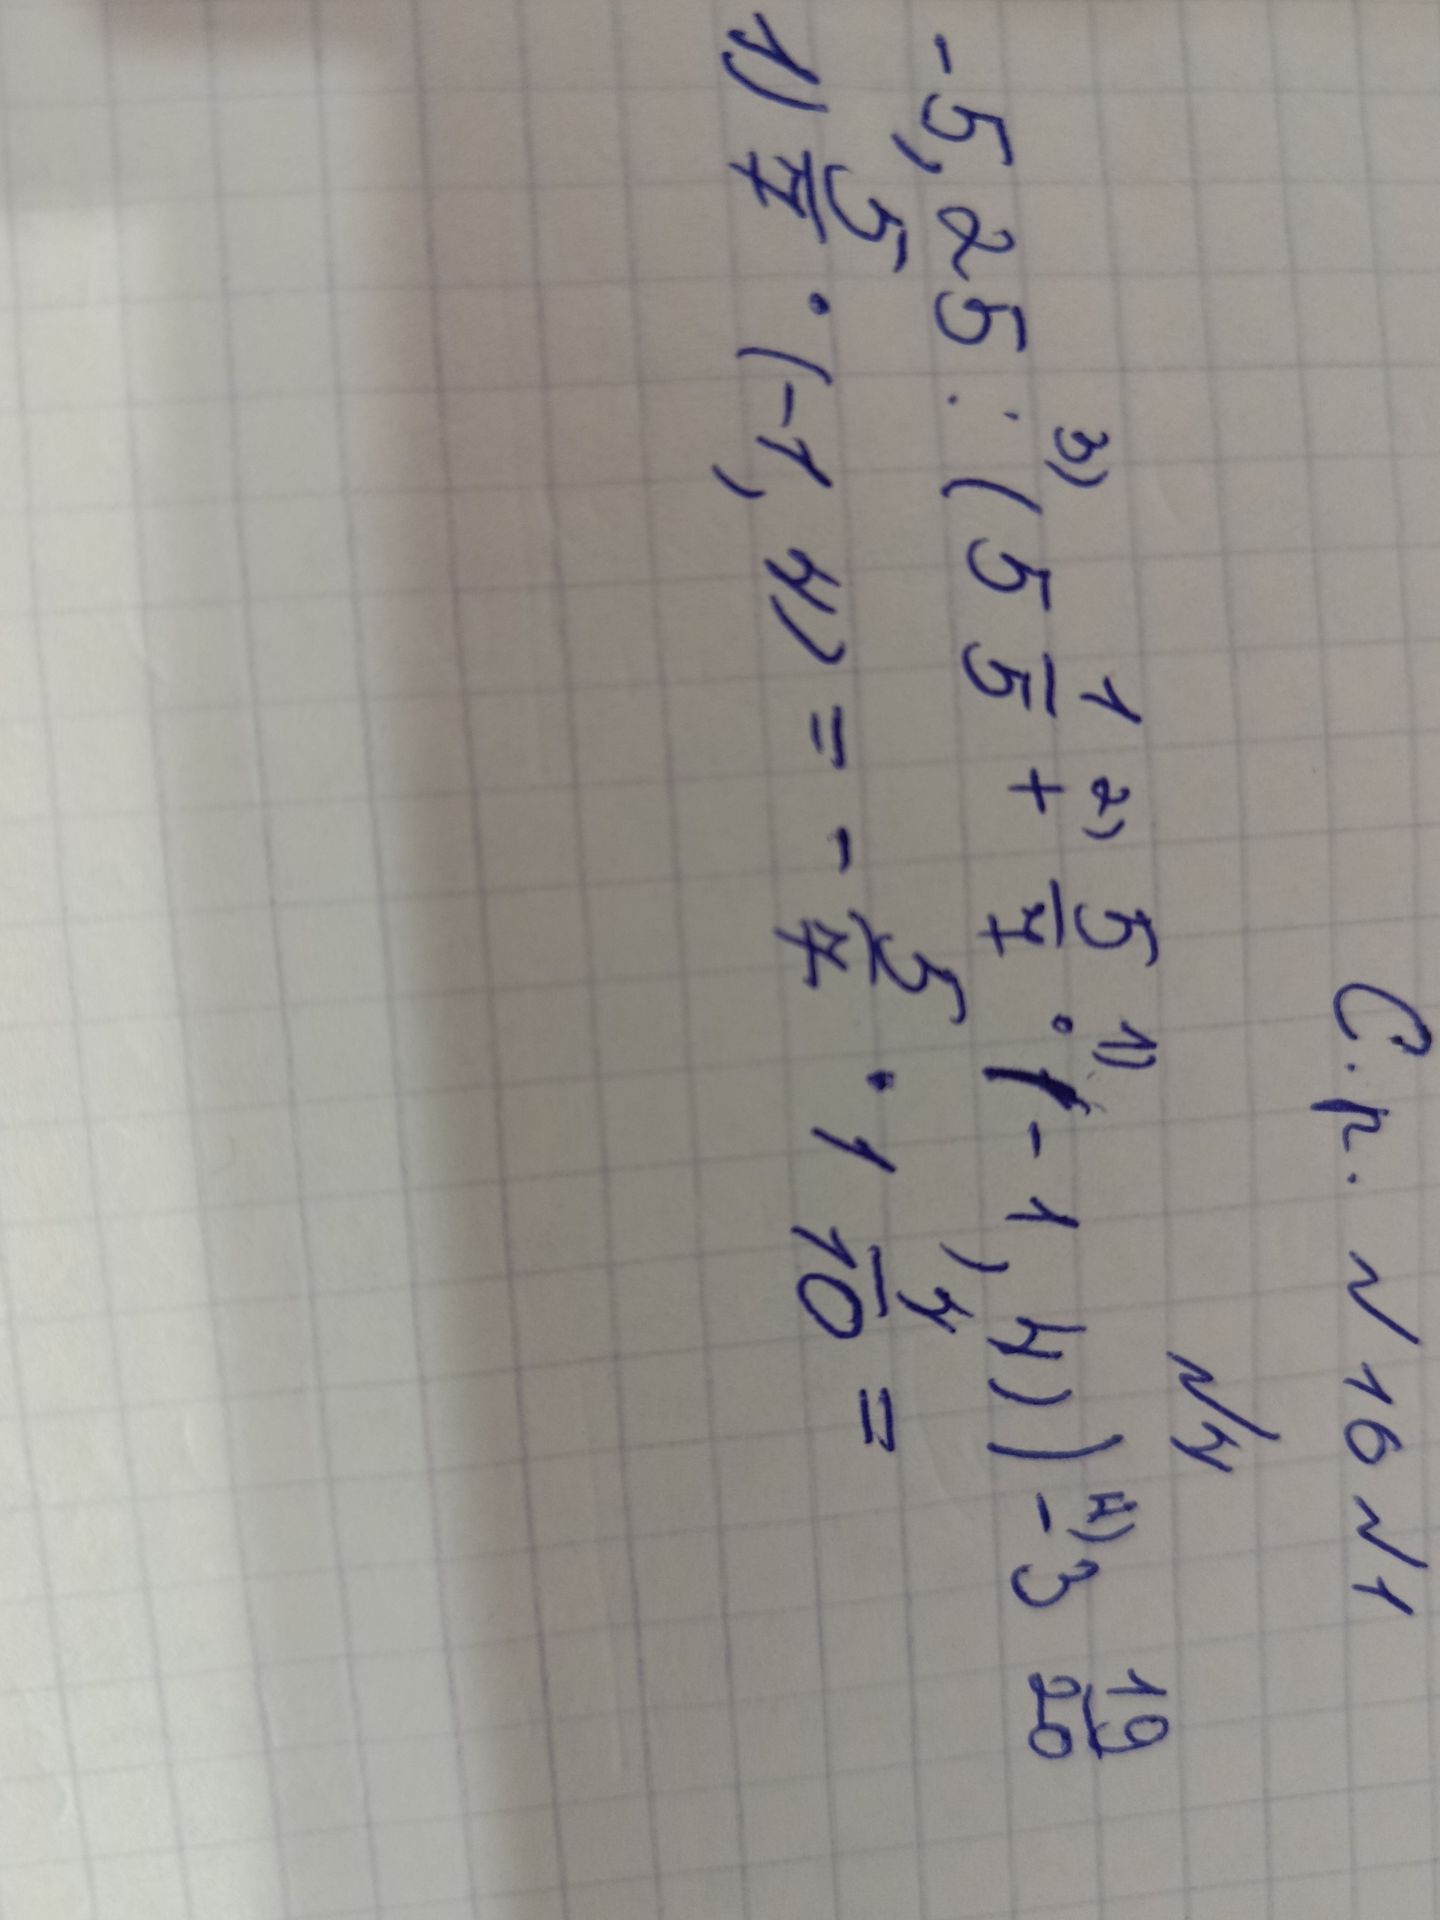 С.р. №16 №1
№4
-5,25 : ³⁾ (5 1/5 + ²⁾ 5/7 · ¹⁾ (-1,4)) - ⁴⁾ 3 19/20
1) 5/7 · (-1,4) = - 5/7 · 1 4/10 =